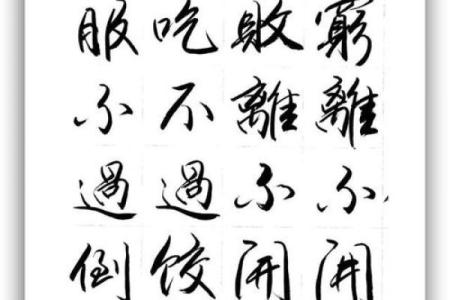 窮離不開
敗離不開
吃不過饺
服不過倒